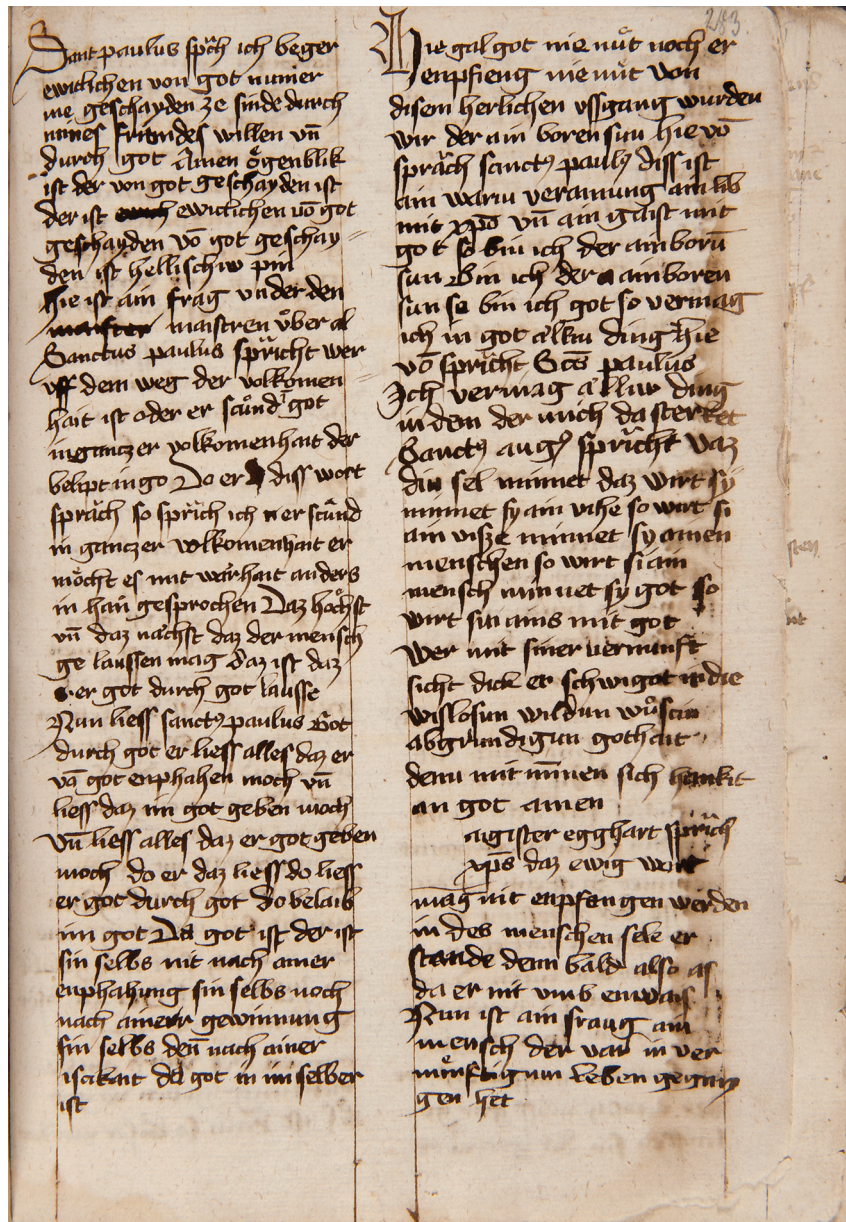 Sant paulus sprͣch ich beger
ewiclichen von got numer
me geschayden ze sinde durch
mines frúndes willen vn̄
durch got Ainen ŏgenblik
ist der von got geschayden ist
der ist ewiclichen vō got
geschayden vō got geschay=
den ist hellischiw pin
hie ist ain frag vnder den
maister maistren v̊ber al
Sanctus paulus spricht wer
vff dem weg der volkomen=
hait ist oder er stuͦnd I got
in ganczer volkomenhait der
belipt in go Do er diss wort
sprăch so sprich ich er stuͦnd
in ganczer volkomenhait er
mŏcht es mit warhait anders
in han gesprochen Daz hŏchst
vn̄ daz năchst daz der mensch
ge laussen mag daz ist daz
er got durch got lausse
Nun liess sanctꝰ paulus Got
durch got er liess alles daz er
vō got enphahen moch vn̄
liess daz im got geben moch
vn̄ liess alles daz er got geben
moch do er daz liess do liess
er got durch got do belaib
im got Da got ist der ist
sin selbs nit nach ainer
enphahung sin selbs noch
nach ainerr gewinnung
sin selbs den̄ nach ainer
isikait da got in im selber
ist
243.
Hie gal got nie nuͤt noch er
enpfieng nie nuͤt von
disem herlichen vssgang wurden
wir der ain boren sun hie vō
sprăch sanctꝰ paulꝰ diss ist
ain wariu verainung ain lib
mit xp̄o vn̄ ain gaist mit
got so bin ich der ainborn̄
sun Bin ich der ainboren
sun so bin ich got so vermag
ich in got alliu ding hie
vō spricht Sc̄s paulus
Ich vermag alliw ding
in dem der mich da sterket
Sanctꝰ augꝰ spricht vaz
din sel minnet daz wirt sy
minnet sy ain vihe so wirt si
ain vihe minnet sy ainen
menschen so wirt si ain
mensch minnet sy got so
wirt si ains mit got
Wer mit siner vernunft
sicht dick er schwigot in die
wislosun wildun wuͦstin
abgrundigun gothait
denn mit minnen sich henkit
an got amen
agister egghart sprich
xp̄s daz ewig wort
mag nit enpfangen werden
in des menschen sele er
stande denn bald also as
da er nit vmb enwais
Nun ist ain fraug ain
mensch der vár in ver
nuͤnftigum leben gegan
gen het